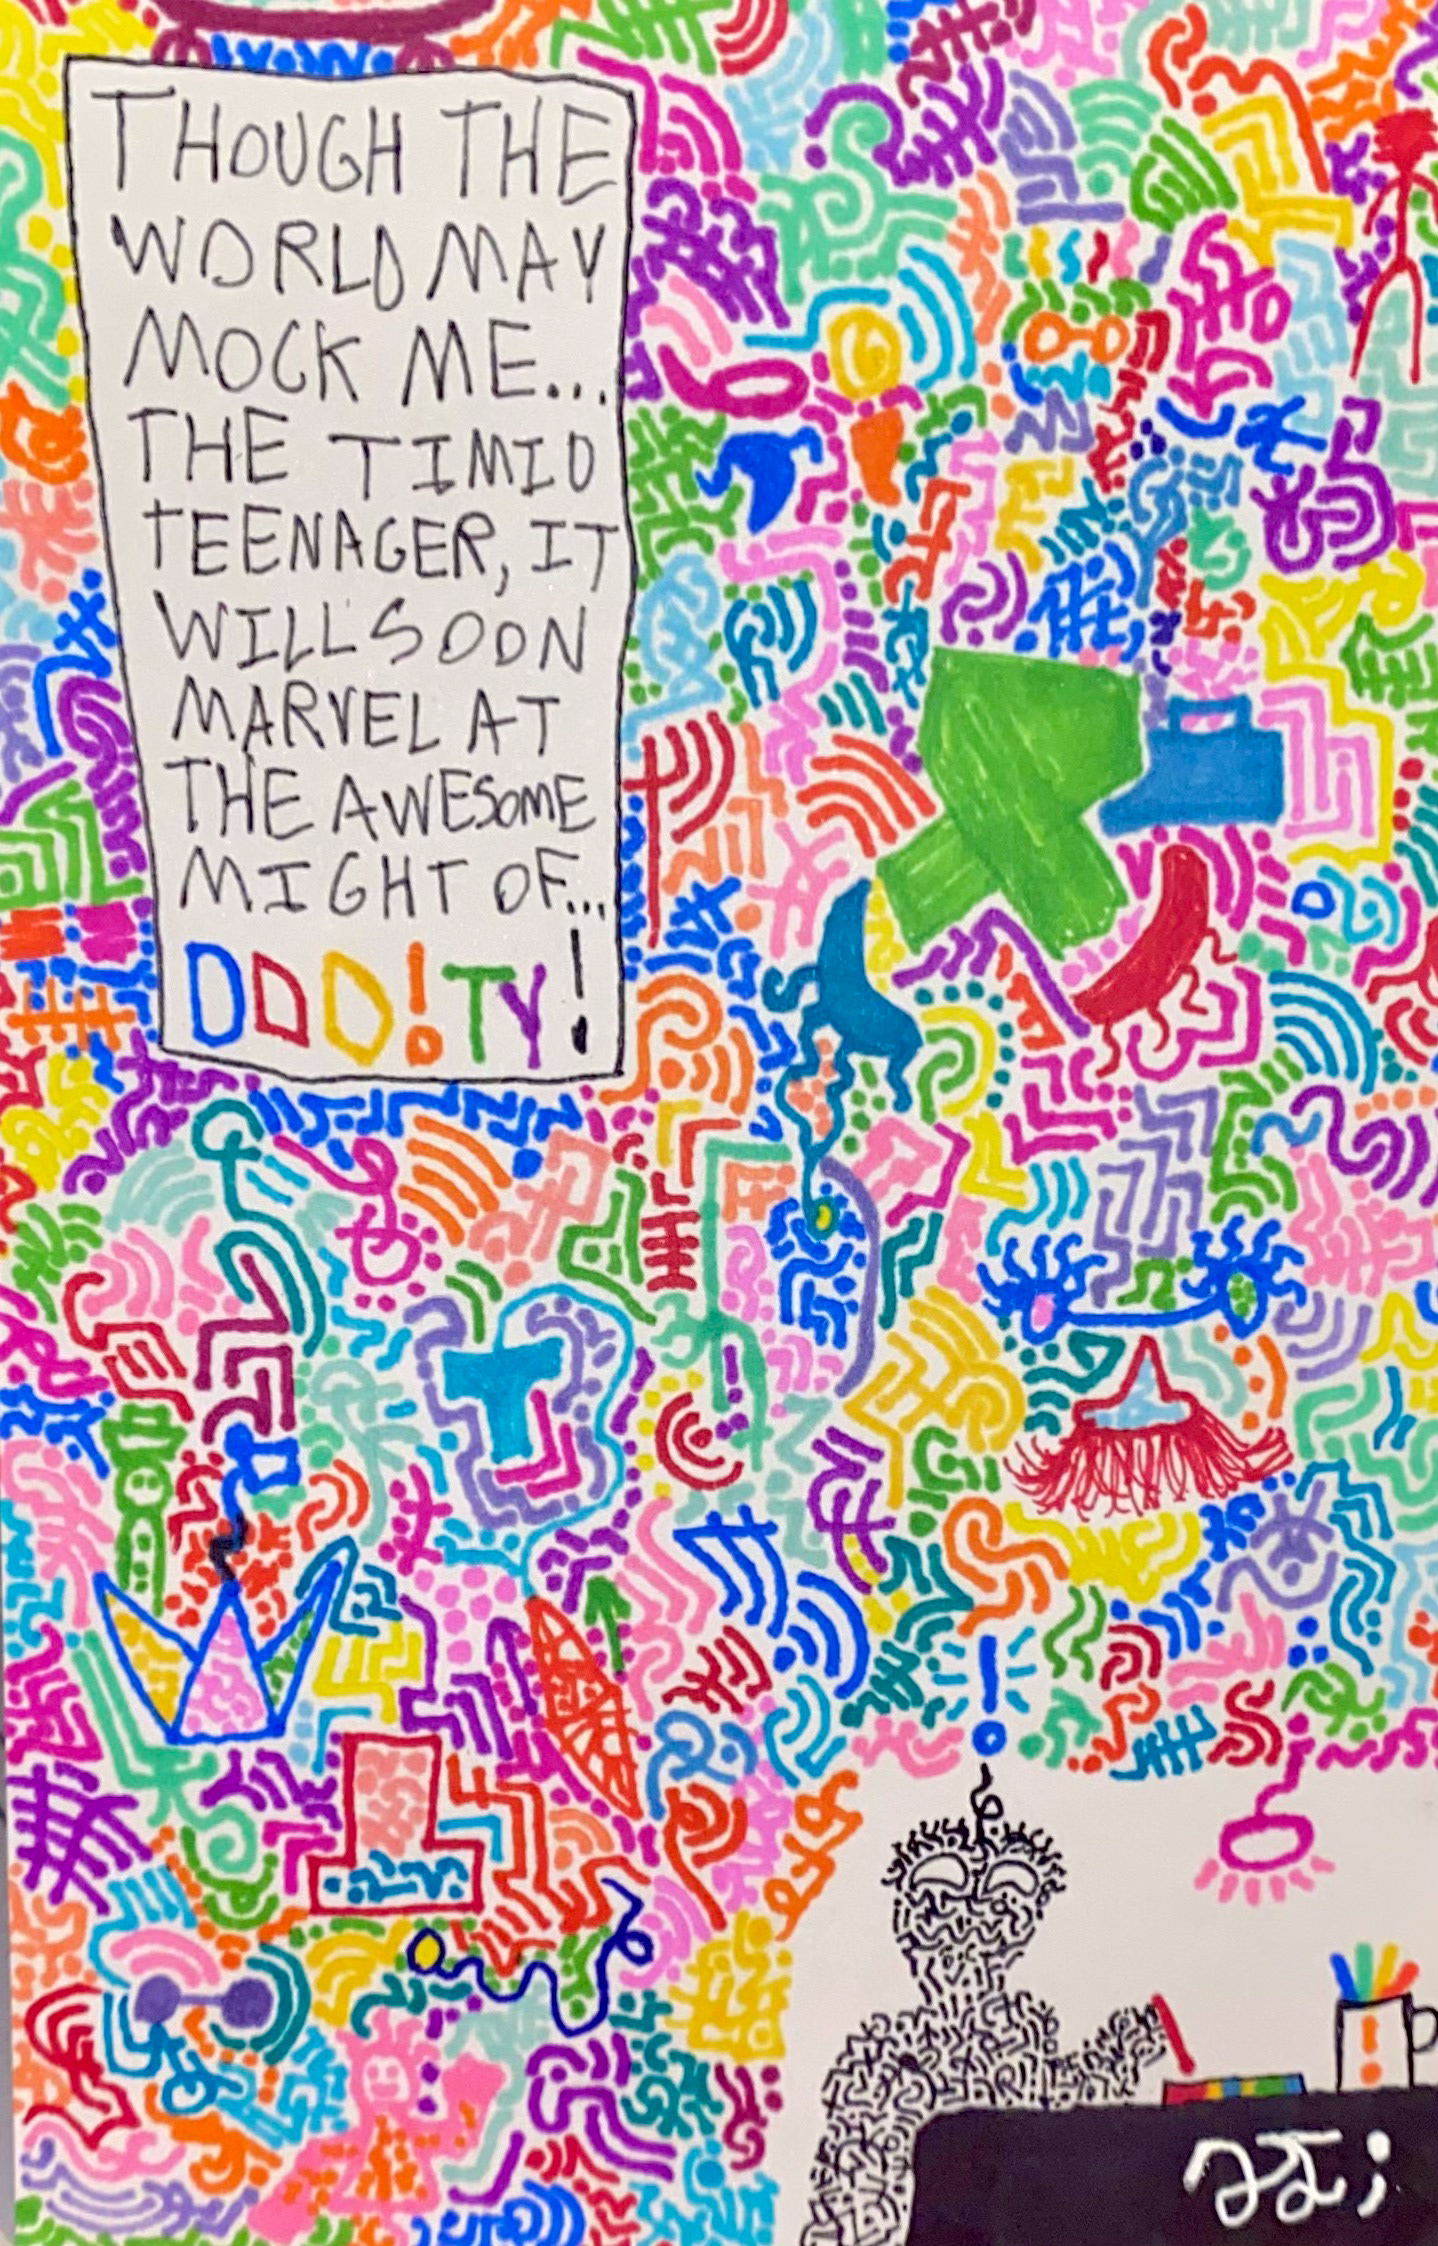 THOUGH THE
WORLD MAY
MOCK ME...
THE TIMID
TEENAGER, IT
WILL SOON
MARVEL AT
THE AWESOME
MIGHT OF...
DOO!TY!
!
!